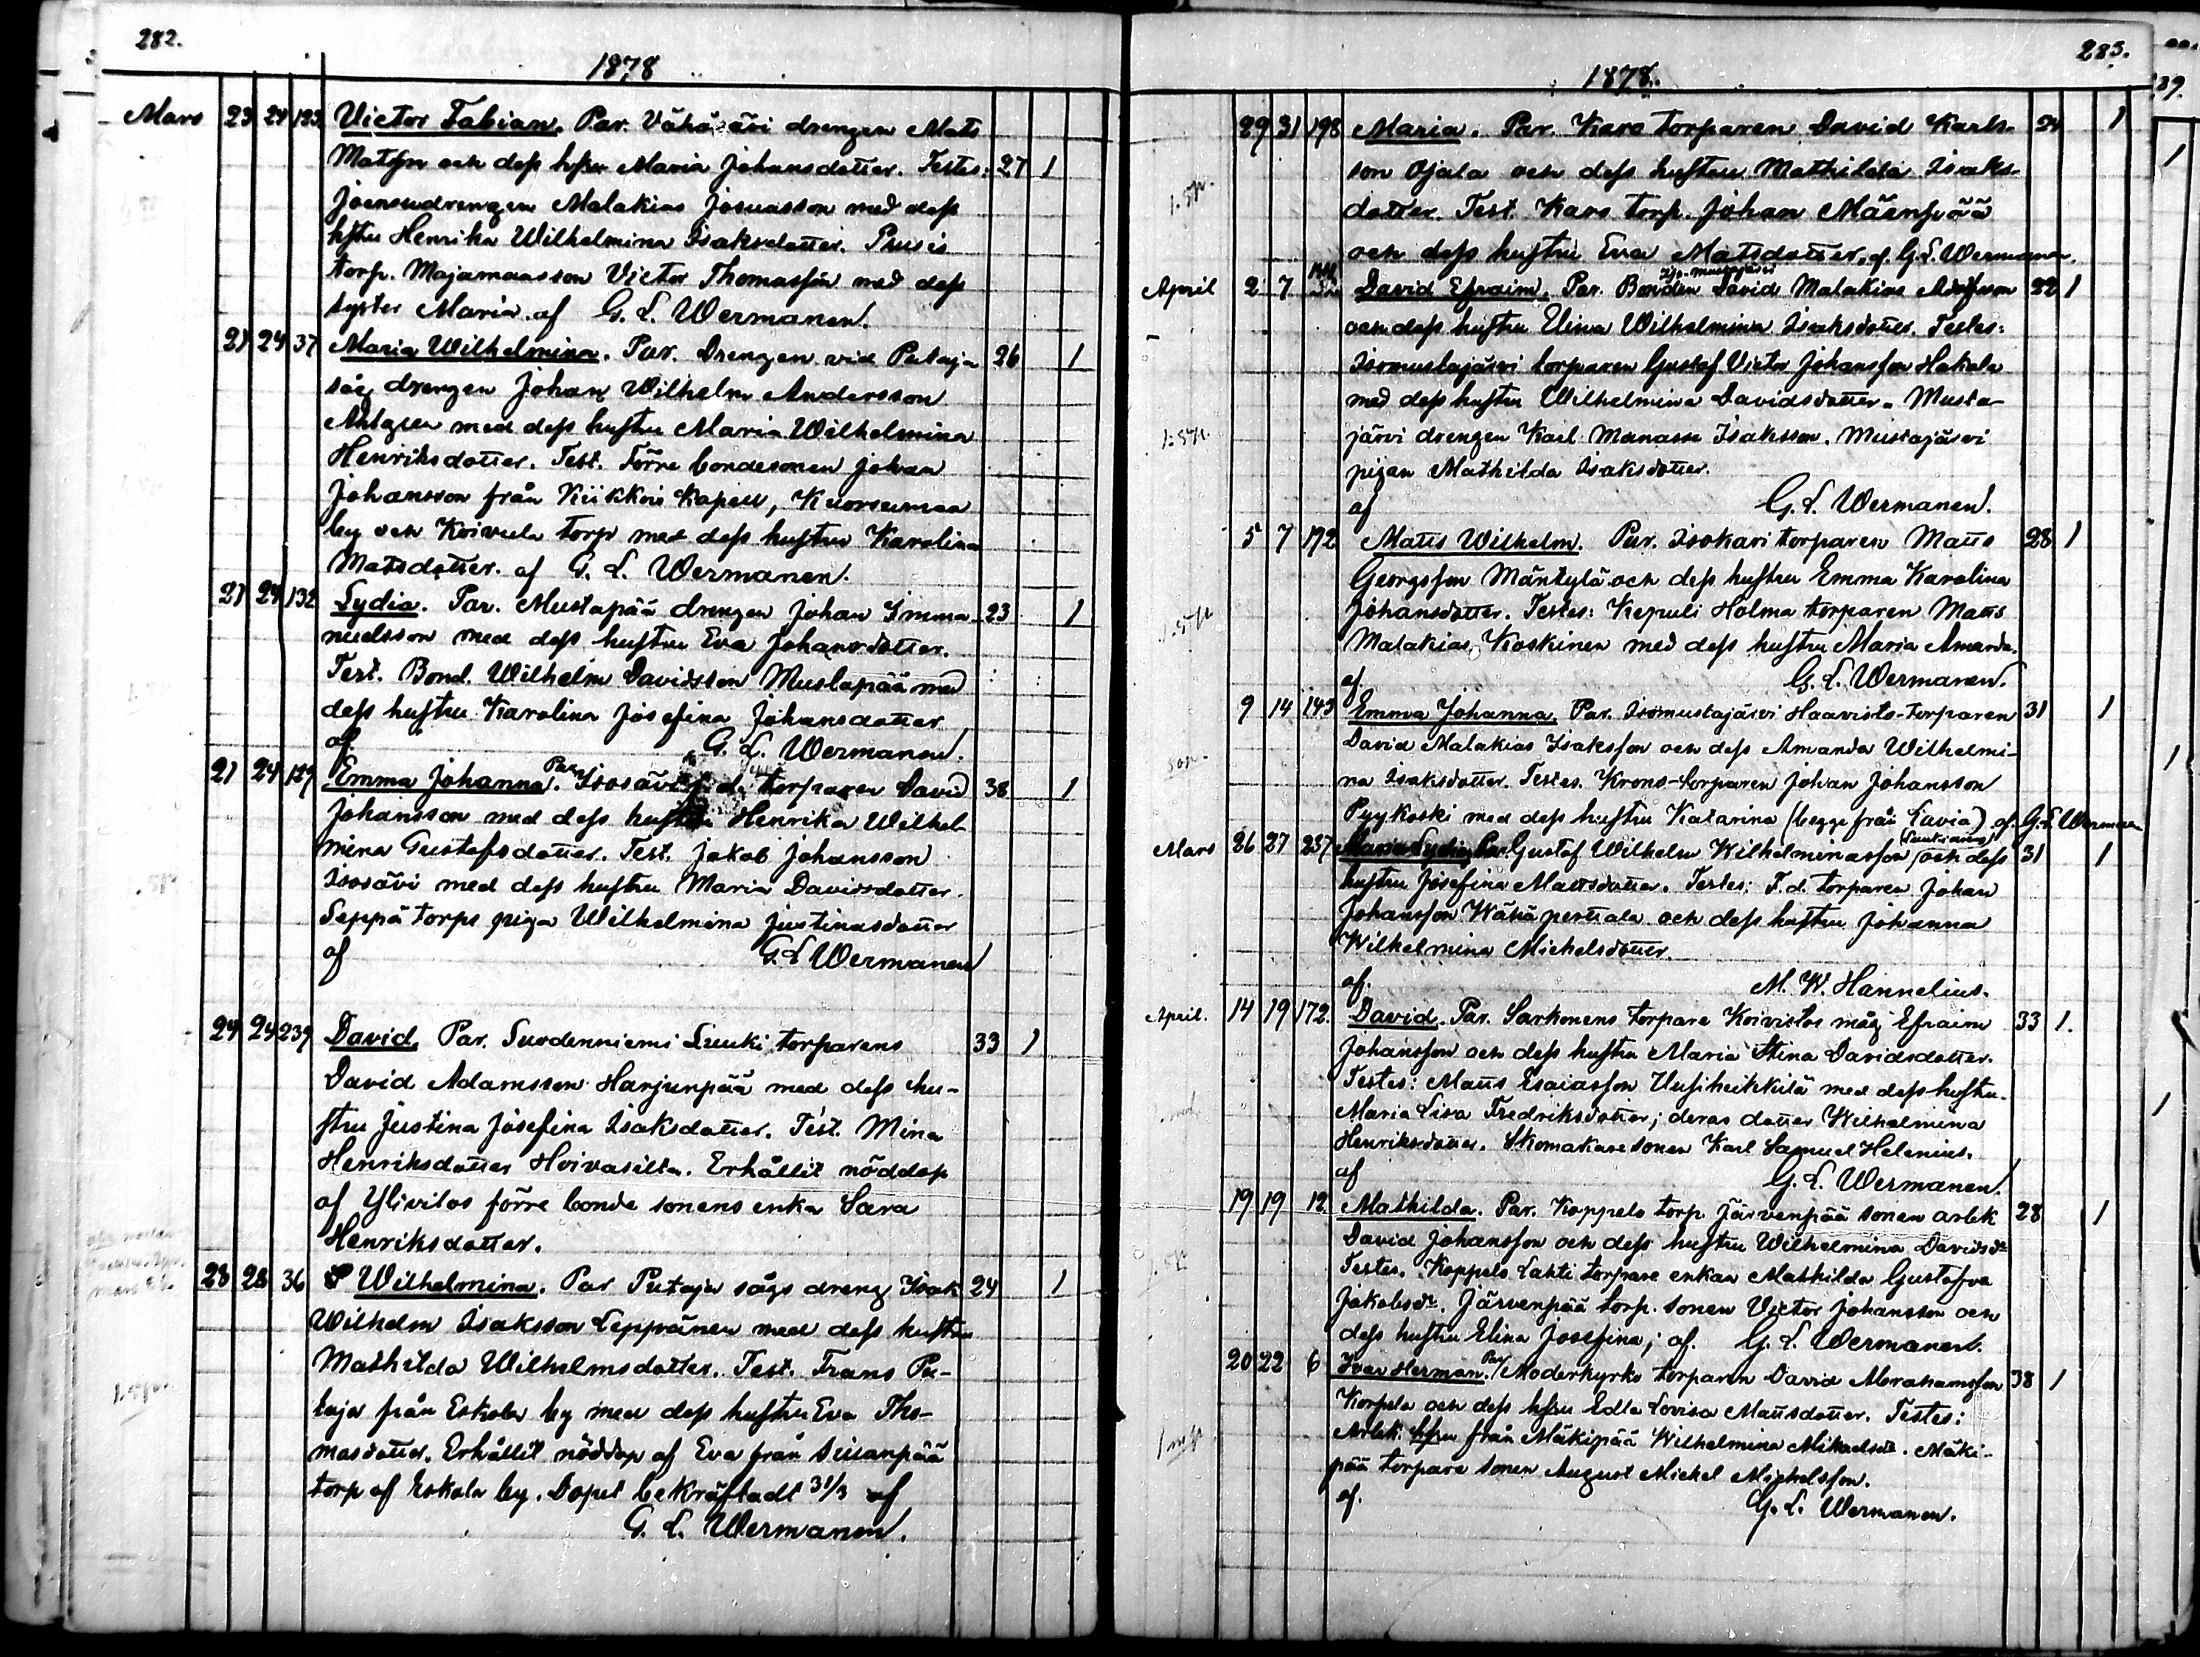 282.
1878
Mars 23 24 123 Victor Fabian. Par. Vähäsävi drengen Mats
Matsson och dess hstru Maria Johansdotter. Testes: 27 1
Joensuudrengen Malakias Josuasson med dess
hstru Henrika Wilhelmina Isaksdotter.
torp. Majamaasson Victor Thomasson med dess
syster Maria. af G. L. Wermanen.
21 24 37 Maria Wilhelmina. Par. Drengen vid Putaja 26 1
såg drengen Johan Wilhelm Andersson
med dess hustru Maria Wilhelmina
Henriksdotter. Test. Förre bondesonen Johan
Johansson från Kiikkois Kapell, Kuorsumaa
by och Koivula torp med dess hustru Karolina
Matsdotter. af G. L. Wermanen.
21 24 132 Lydia. Par. Mustapää drengen Johan Imma- 23 1
nuelsson med dess hustru Eva Johansdotter.
Test. Bond. Wilhelm Davidsson Mustapää med
dess hustru Karolina Josefina Johansdotter
af. G. L. Wermanen.
21 24 129 Emma Johanna. Par Isosävi f.d. torparen David 38 1
Johansson med dess hustru Henrika Wilhel-
mina Gustafsdotter. Test. Jakob Johansson
Isosävi med dess hustru Maria Davidsdotter.
Seppä torps piga Wilhelmina Justinasdotter
af G. L Wermanen
24 24 239 David. Par. Suodenniemi Luuki torparens 33 1
David Adamsson Harjunpää med dess hu-
stru Justina Josefina Isaksdotter. Test. Mina
Henriksdotter Hoivasilta. Erhållit nöddop
af Ylivilos förre bonde sonens enka Sara
Henriksdotter.
28 28 36 Wilhelmina. Par Putaja sågs dreng Isak 24 1
Wilhelm Isaksson Leppänen med dess hustru
Mathilda Wilhelmsdotter. Test. Frans Pu-
taja från Eskola by med dess hustru Eva Tho-
masdotter. Erhållit nöddop af Eva från
torp af Eskola by. Dopet bekräftadt 31/3 af
G. L. Wermanen.
283.
1878.
29 31 198 Maria. Par. Karo torparen David Karls- 24 1
son Ojala och dess hustru Mathilda Isaks-
dotter. Test. Karo torp. Johan Mäenpää
och dess hustru Eva Matsdotter. af. G. L. Wermanen.
April 2 7 David Efraim. Par. Bonden David Malakias Adolfsson 22 1
och dess hustru Elina Wilhelmina Isaksdotter. Testes:
Isomustajärvi torparen Gustaf Victor Johansson Hakala
med dess hustru Wilhelmina Davidsdotter. Musta-
järvi drengen Karl Manasse Isaksson. Mustajärvi
pigan Mathilda Isaksdotter.
af G. L. Wermanen.
5 7 172 Matts Wilhelm. Par. Isokari torparen Matts 28 1
Georgsson Mäntylä och dess hustru Emma Karolina
Johansdotter. Testes: Kepuli Holma torparen Matts
Malakias Koskinen med dess hustru Maria Amanda.
af. G. L. Wermanen.
9 14 143 Emma Johanna. Par. Isomustajärvi Haavisto-torparen 31 1
David Malakias Isaksson och dess Amanda Wilhelmi-
na Isaksdotter. Testes. Krono-torparen Johan Johansson
Pyykoski med dess hustru Katarina (begge från Lavia) af. G. L Wermanen
Mars 26 27 257 Maria Lydia Par. Gustaf Wilhelm Wilhelminasson och dess 31 1
hustru Josefina Mattsdotter. Testes: F.d. torparen Johan
Johansson Wähäperttala och dess hustru Johanna
Wilhelmina Michelsdotter.
af. M. W. Hannelius.
April. 14 19 172. David. Par. Sarkonens torpare Koivistos måg Efraim 33 1.
Johansson och dess hustru Maria Stina Davidsdotter.
Testes: Matts Esaiasson Uusiheikkilä med dess hustru
Maria Lisa Fredriksdotter; deras dotter Wilhelmina
Henriksdotter. Skomakaresonen Karl Samuel Helenius.
af G. L. Wermanen.
19 19 12 Mathilda. Par. Koppelo torp Järvenpää sonen arbek 28 1
David Johansson och dess hustru Wilhelmina Davidsdr
Testes. Koppelo Lahti torpare enkan Mathilda Gustafva
Jakobsdr. Järvenpää torp. sonen Victor Johansson och
dess hustru Elina Josefina; af. G. L. Wermanen.
20 22 6 Ivar Herman. Par Moderkyrko torparen David Abrahamsson 38 1
Korpela och dess hstru Edla Lovisa Mattsdotter. Testes:
Arbek. hstru från Mäkipää Wilhelmina Mikaelsdr. Mäki-
pää torpare sonen August Mickel Michelsson.
af. G. L. Wermanen.